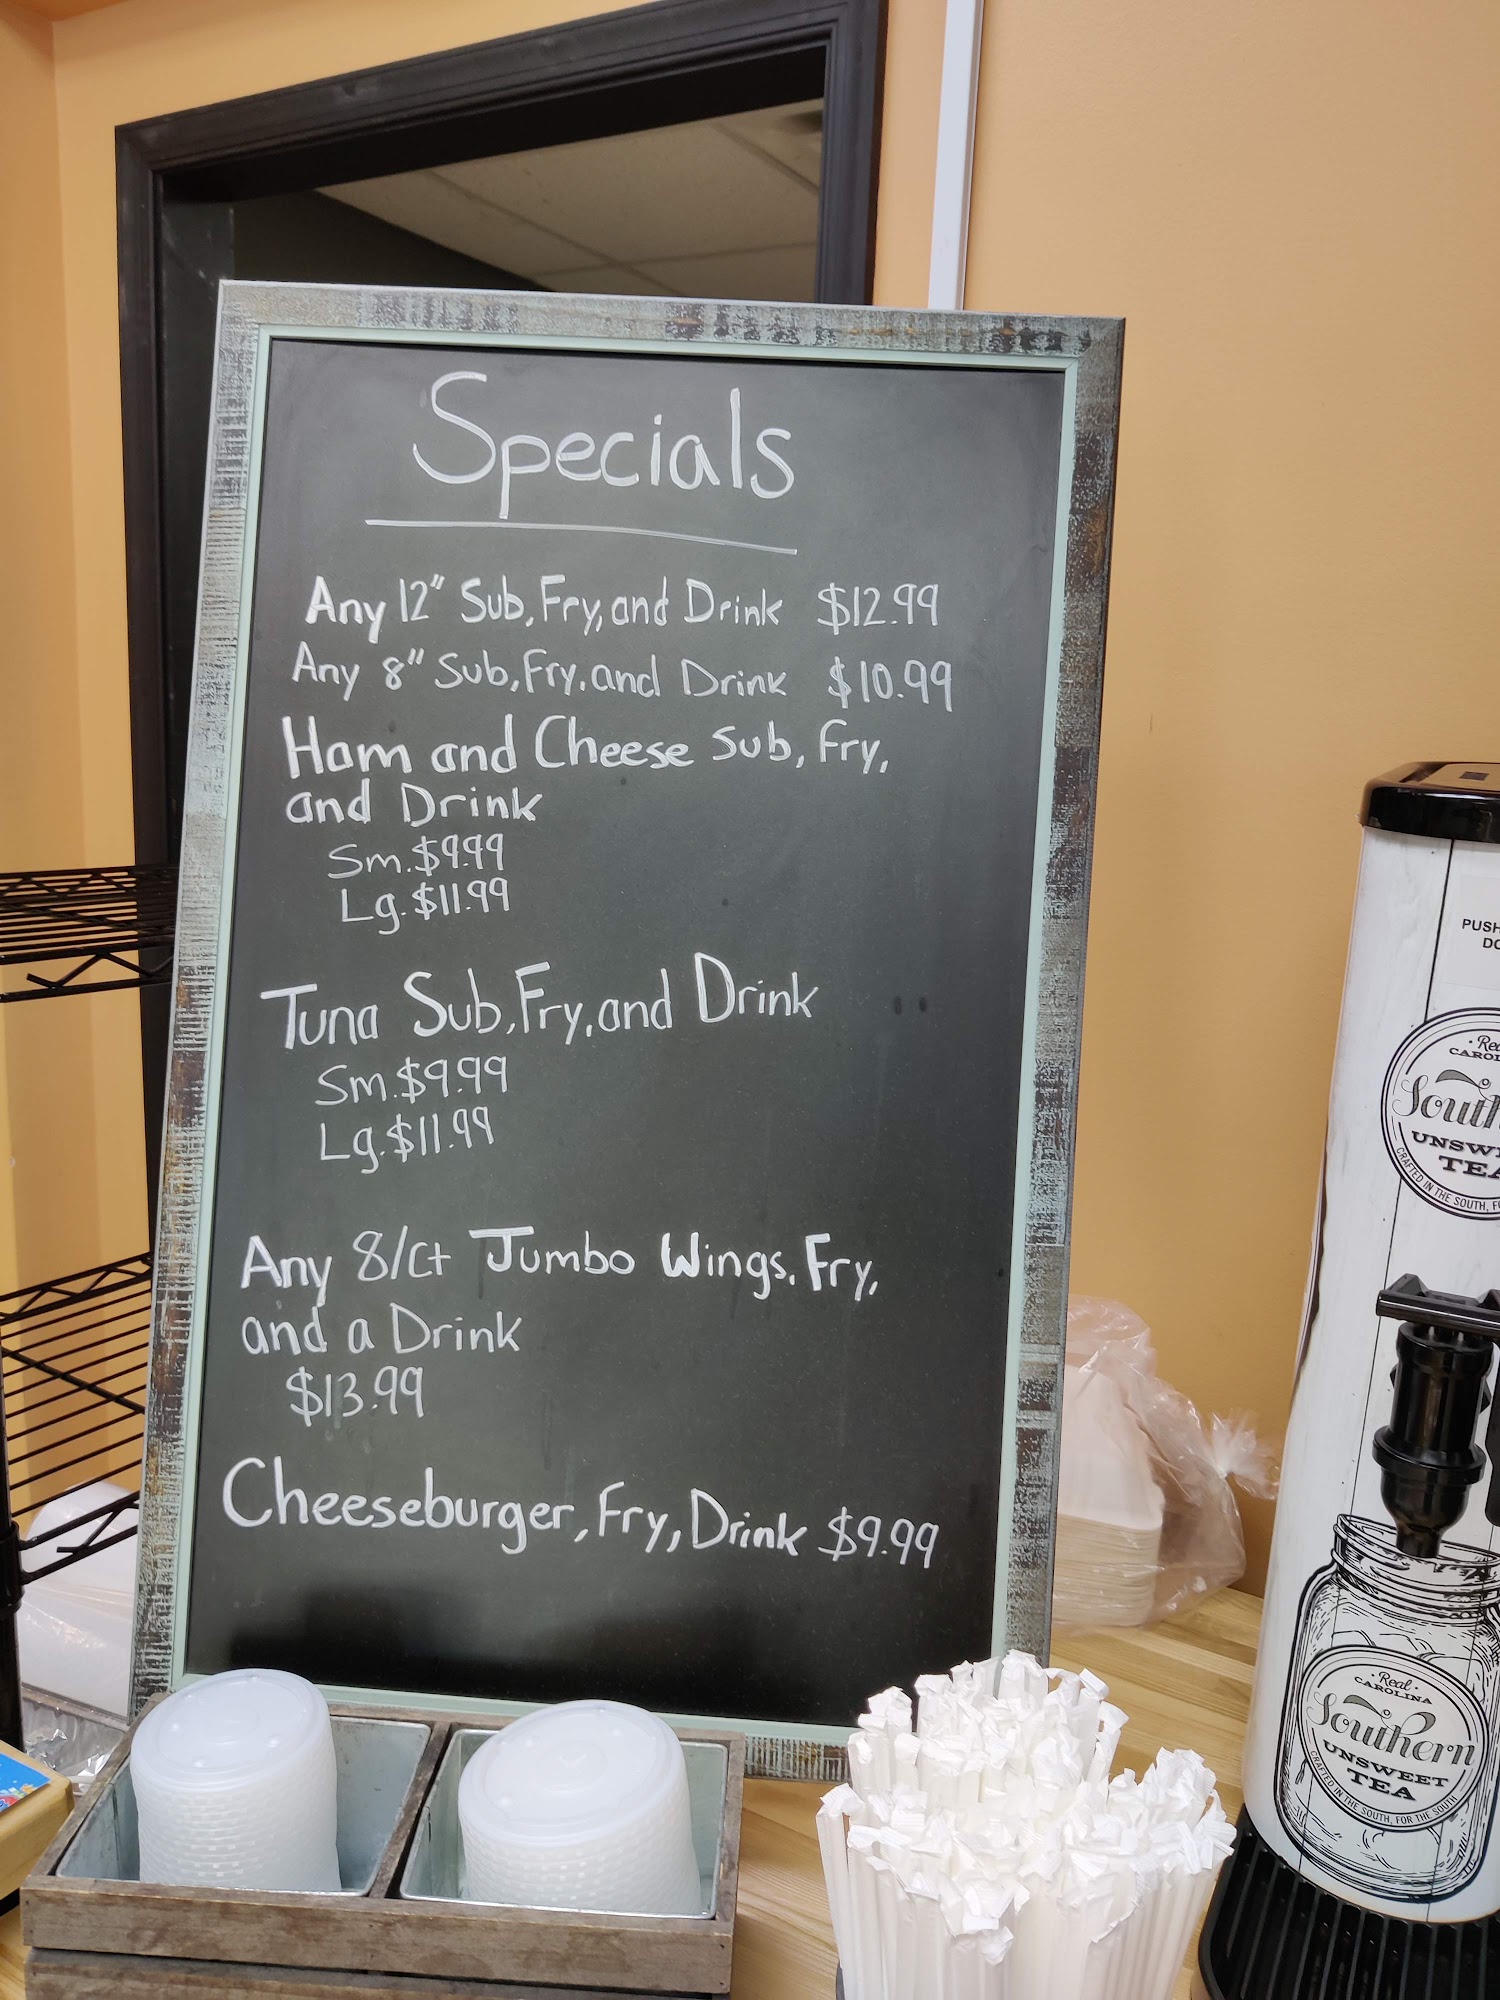 Specials
Any 12" Sub, Fry, and Drink $12.99
Any 8" Sub, Fry, and Drink $10.99
Ham and Cheese Sub, Fry,
and Drink
Sm. $9.99
Lg. $11.99
Tuna Sub, Fry, and Drink
Sm. $9.99
Lg. $11.99
Any 8/Ct Jumbo Wings, Fry,
and a Drink
$13.99
Cheeseburger, Fry, Drink $9.99
PUSH
Real
CAROLINA
Southern
UNSWEET
TEA
CRAFTED IN THE SOUTH, FOR THE SOUTH